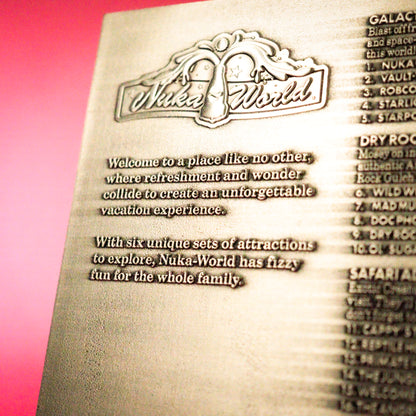 Nuka World
Welcome to a place like no other,
where refreshment and wonder
collide to create an unforgettable
vacation experience.
With six unique sets of attractions
to explore, Nuka-World has fizzy
fun for the whole family.
GALAC
Blast off fr
and space-
this world!
1. NUKA
2. VAULT
3. ROBCO
4. STARL
5. STARPO
DRY ROC
Mosey on in
authentic
Rock Gulch
6. WILD W
7. MAD M
8. DOC PH
9. DRY RO
10. OL' SUG
SAFARI A
11. CAPPY
12. REPTILE
14. THE JUNG
15. WELCO